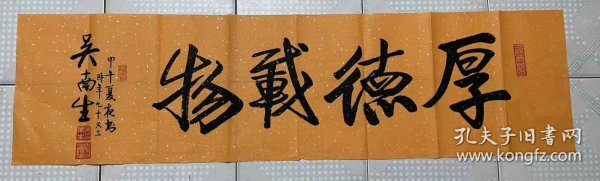 厚德載物
甲午夏夜书
时年九十又三
吴南生
孔夫子旧书网
www.kongfz.com